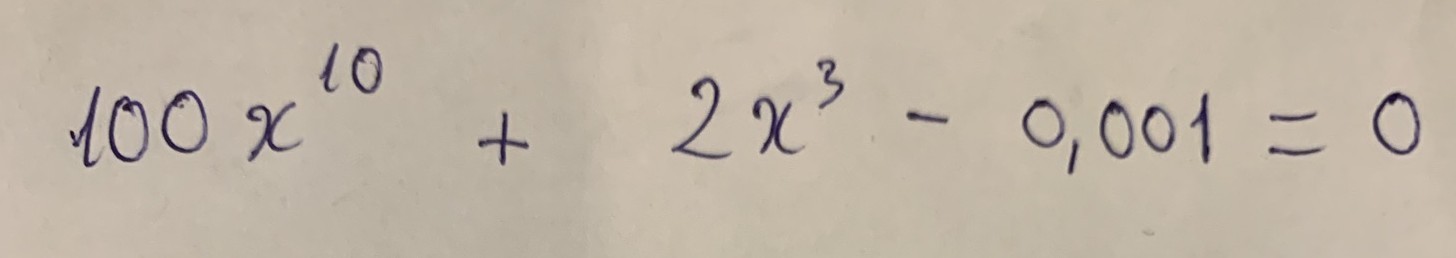 100x¹⁰ + 2x³ - 0,001 = 0